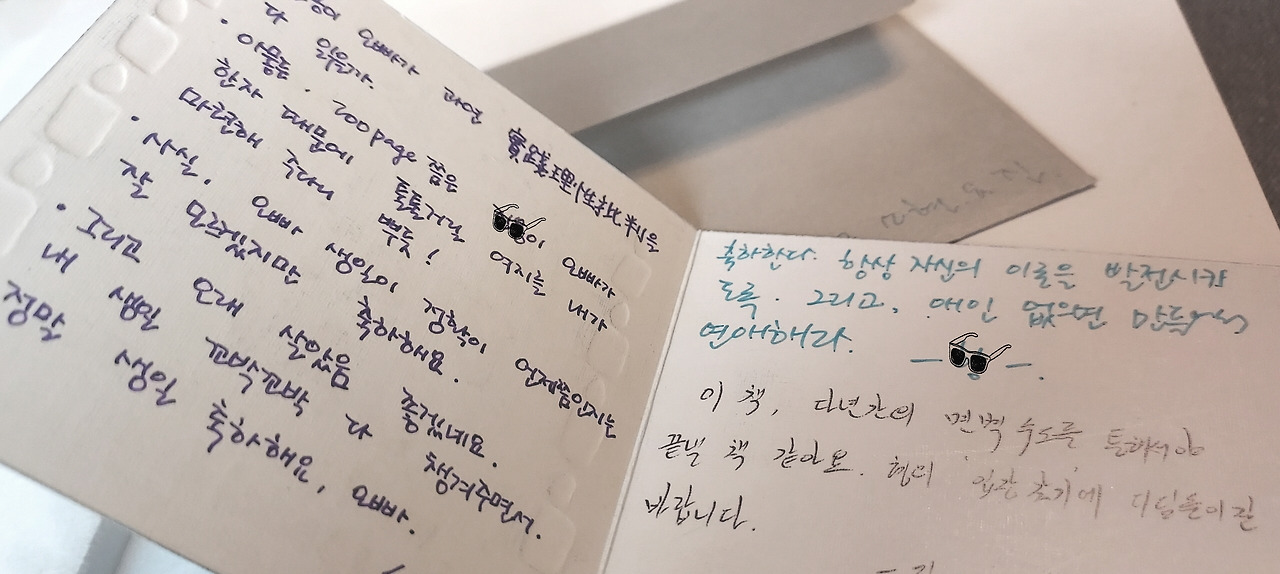 오빠가 과연 實踐理性批判을
다 읽을까.
· 아물튼. 200page 쯤은 이 오빠가
한자 때문에 툴툴거릴 여지를 내가
마련해 주다니 뿌듯!
· 사실, 오빠 생일이 정확히 언제쯤인지는
잘 모르겠지만 축하해요.
· 그리고 오래 살았음 좋겠네요.
내 생일 꼬박꼬박 다 챙겨주면서.
정말 생일 축하해요, 오빠.
축하한다. 항상 자신의 이론을 발전시키
도록. 그리고, 애인 없으면 만들어서
연애해라.
이 책, 다년간의 면벽 수도를 통해서야
끝낼 책 같아요. 형의 입장 찾기에 디딤돌이길
바랍니다.